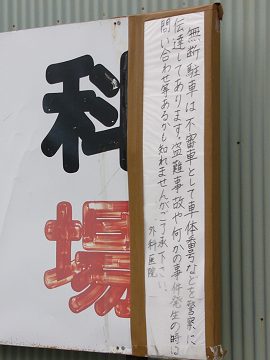 科
場
無断駐車は不審車として車体番号などを警察に
伝達してあります。盗難事故や何かの事件発生の時に
問い合わせ等あるかも知れませんがご了承下さい。
外科医院